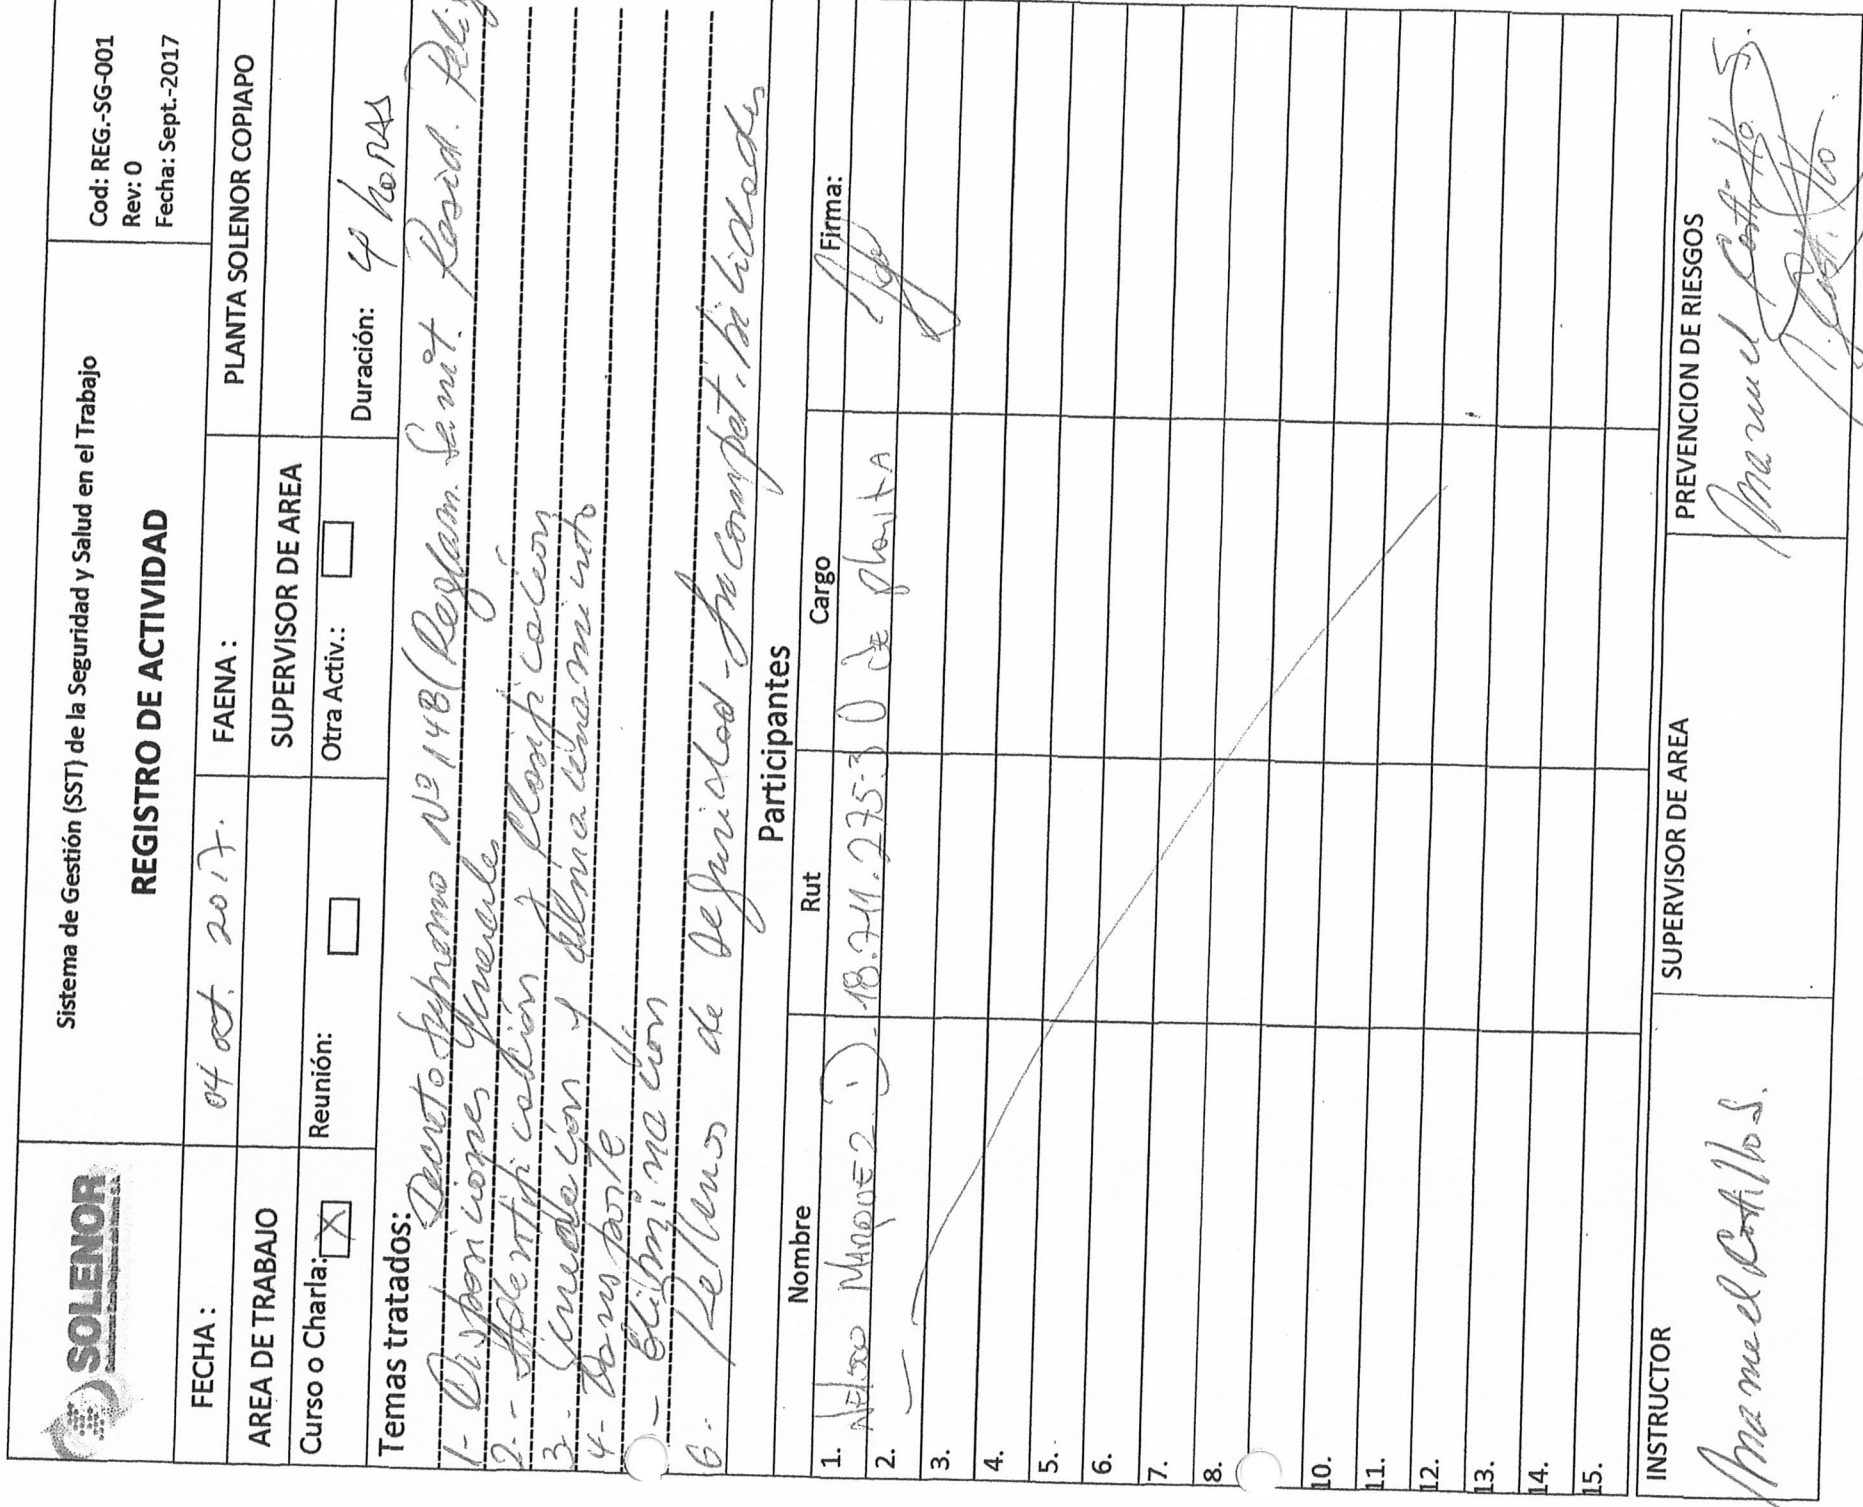 SOLENOR
Sistema de Gestión (SST) de la Seguridad y Salud en el Trabajo
REGISTRO DE ACTIVIDAD
Cod: REG.-SG-001
Rev: 0
Fecha: Sept.-2017
FECHA: 04 oct. 2017. FAENA: PLANTA SOLENOR COPIAPO
AREA DE TRABAJO SUPERVISOR DE AREA
Curso o Charla: X Reunión: Otra Activ.: Duración: 4 horas
Temas tratados: Decreto Supremo Nº 148 (Reglam. Sanit. Resid. Pelig
1- Disposiciones Generales
2.- Identificación y Clasificación
3- Generación y Almacenamiento
4- Transporte
- Eliminación
6. de seguridad - Incompatibilidades
Participantes
Nombre Rut Cargo Firma:
1. Nelson Marquez J. 18.711.275-3 O de planta
2.
3.
4.
5.
6.
7.
8.
10.
11.
12.
13.
14.
15.
INSTRUCTOR SUPERVISOR DE AREA PREVENCION DE RIESGOS
Manuel Castillo S. Manuel Castillo S.